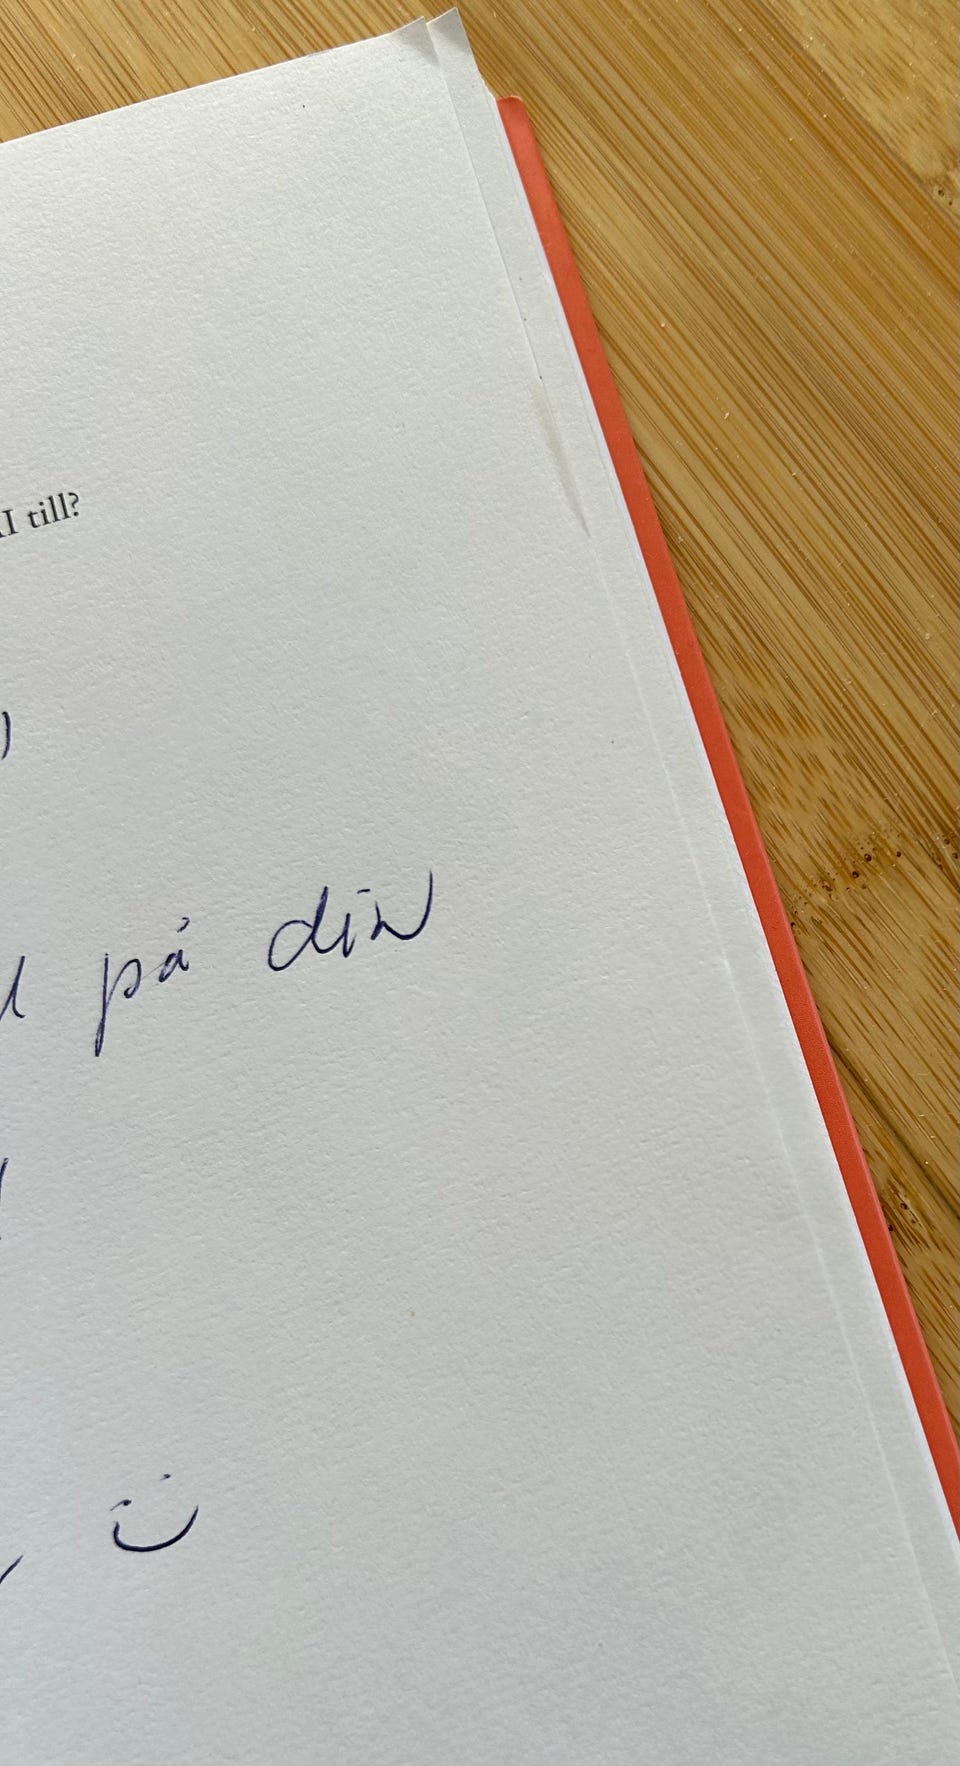 AI till?
på din